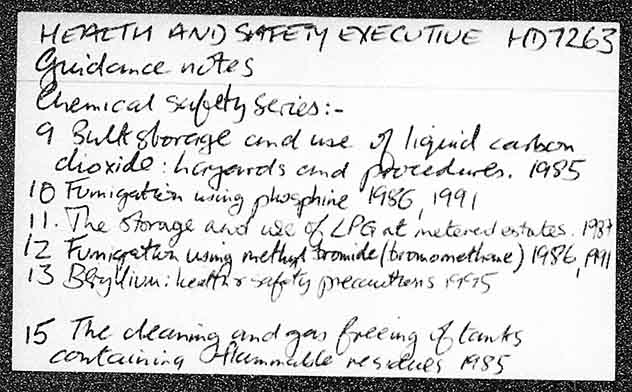 HEALTH AND SAFETY EXECUTIVE HD7263
Guidance notes
Chemical safety series:-
9 Bulk storage and use of liquid carbon
dioxide: hazards and procedures. 1985
10 Fumigation using phosphine 1986, 1991
11. The storage and use of LPG at metered estates. 1987
12 Fumigation using methyl bromide (bromomethane) 1986, 1991
13 Beryllium: health & safety precautions 1995
15 The cleaning and gas freeing of tanks
containing flammable residues 1985